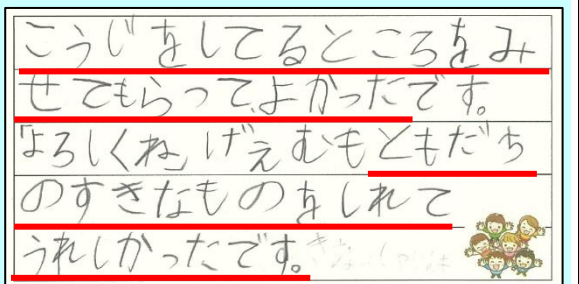 こうじをしてるところをみ
せてもらって、よかったです。
「よろしくね」げえむもともだち
のすきなものをしれて
うれしかったです。